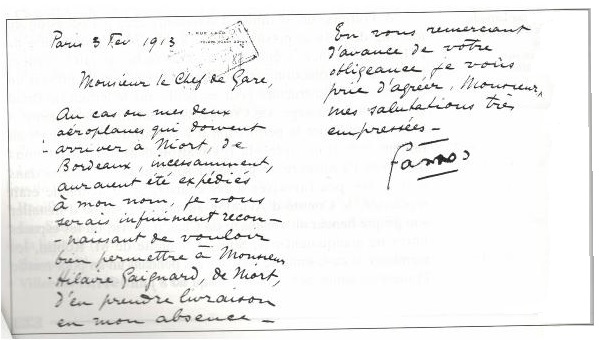 Paris 3 Fev 1913
Monsieur le Chef de Gare,
Au cas ou mes deux
aéroplanes qui doivent
arriver à Niort, de
Bordeaux, incessamment,
auraient été expédiés
à mon nom, je vous
serais infiniment recon-
-naissant de vouloir
bien permettre à Monsieur
Hilaire Gaignard, de Niort,
d'en prendre livraison
en mon absence -
En vous remerciant
d'avance de votre
obligeance, je vous
prie d'agréer, Monsieur,
mes salutations très
empressées -